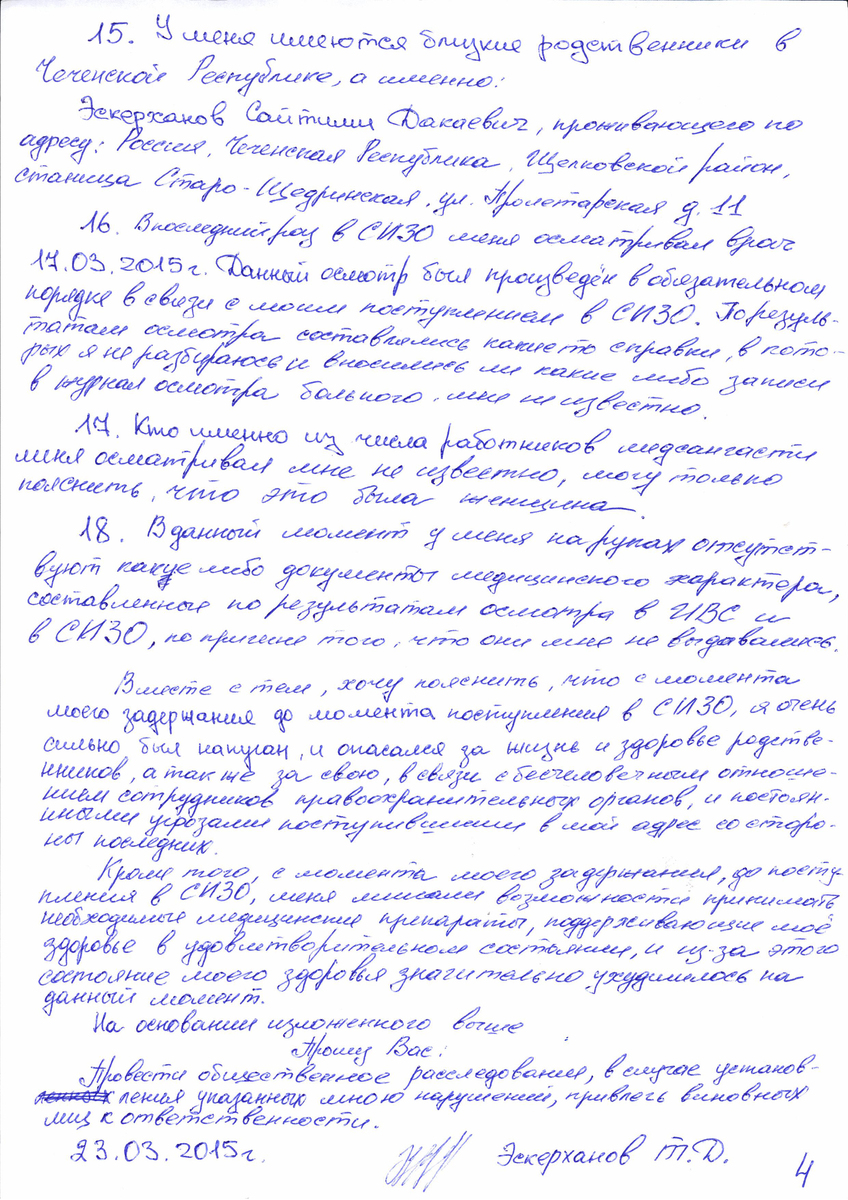 15. У меня имеются близкие родственники в
Чеченской Республике, а именно:
Эскерханов Сайтими Дакаевич, проживающего по
адресу: Россия, Чеченская Республика, Щелковской район,
станица Старо-Щедринская, ул. Пролетарская д. 11
16. В последний раз в СИЗО меня осматривал врач
17.03.2015г. Данный осмотр был произведён в обязательном
порядке в связи с моим поступлением в СИЗО. По резуль-
татам осмотра составлялись какие то справки, в кото-
рых я не разбираюсь и вносились ли какие либо записи
в журнал осмотра больного, мне не известно.
17. Кто именно из числа работников медсанчасти
меня осматривал мне не известно, могу только
пояснить, что это была женщина.
18. В данный момент у меня на руках отсутст-
вуют какие либо документы медицинского характера,
составленные по результатам осмотра в ИВС и
в СИЗО, по причине того, что они мне не выдавались.
Вместе с тем, хочу пояснить, что с момента
моего задержания до момента поступления в СИЗО, я очень
сильно был напуган, и опасался за жизнь и здоровье родстве-
нников, а так же за свою, в связи с бесчеловечным отноше-
нием сотрудников правоохранительных органов, и постоян-
ными угрозами поступившими в мой адрес со сторо-
ны последних.
Кроме того, с момента моего задержания, до посту
пления в СИЗО, меня лишали возможности принимать
необходимые медицинские препараты, поддерживающие моё
здоровье в удовлетворительном состоянии, и из-за этого
состояние моего здоровья значительно ухудшилось на
данный момент.
На основании изложенного выше
Прошу Вас:
Провести общественное расследования, в случае установ-
ления указанных мною нарушений, привлечь виновных
лиц к ответственности.
23.03.2015г.
Эскерханов Т.Д.
4